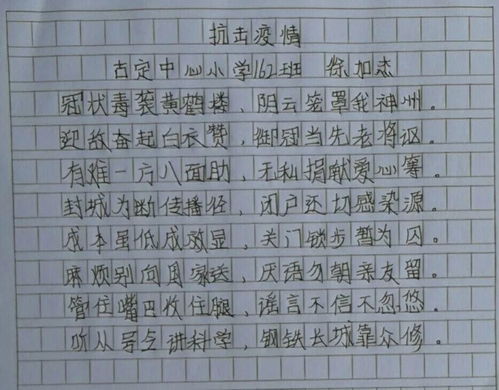 抗击疫情
古定中心小学162班 徐加杰
冠状毒袭黄鹤楼，阴云密罩我神州。
迎敌奋起白衣赞，御冠当先老将讴。
有难一方八面助，无私捐献爱心筹。
封城为断传播径，闭户还切感染源。
成本虽低成效显，关门锁步暂为囚。
麻烦别向国家送，厌语勿朝亲友留。
管住嘴巴收住腿，谣言不信不忽悠。
听从导令讲科学，钢铁长城靠众修。